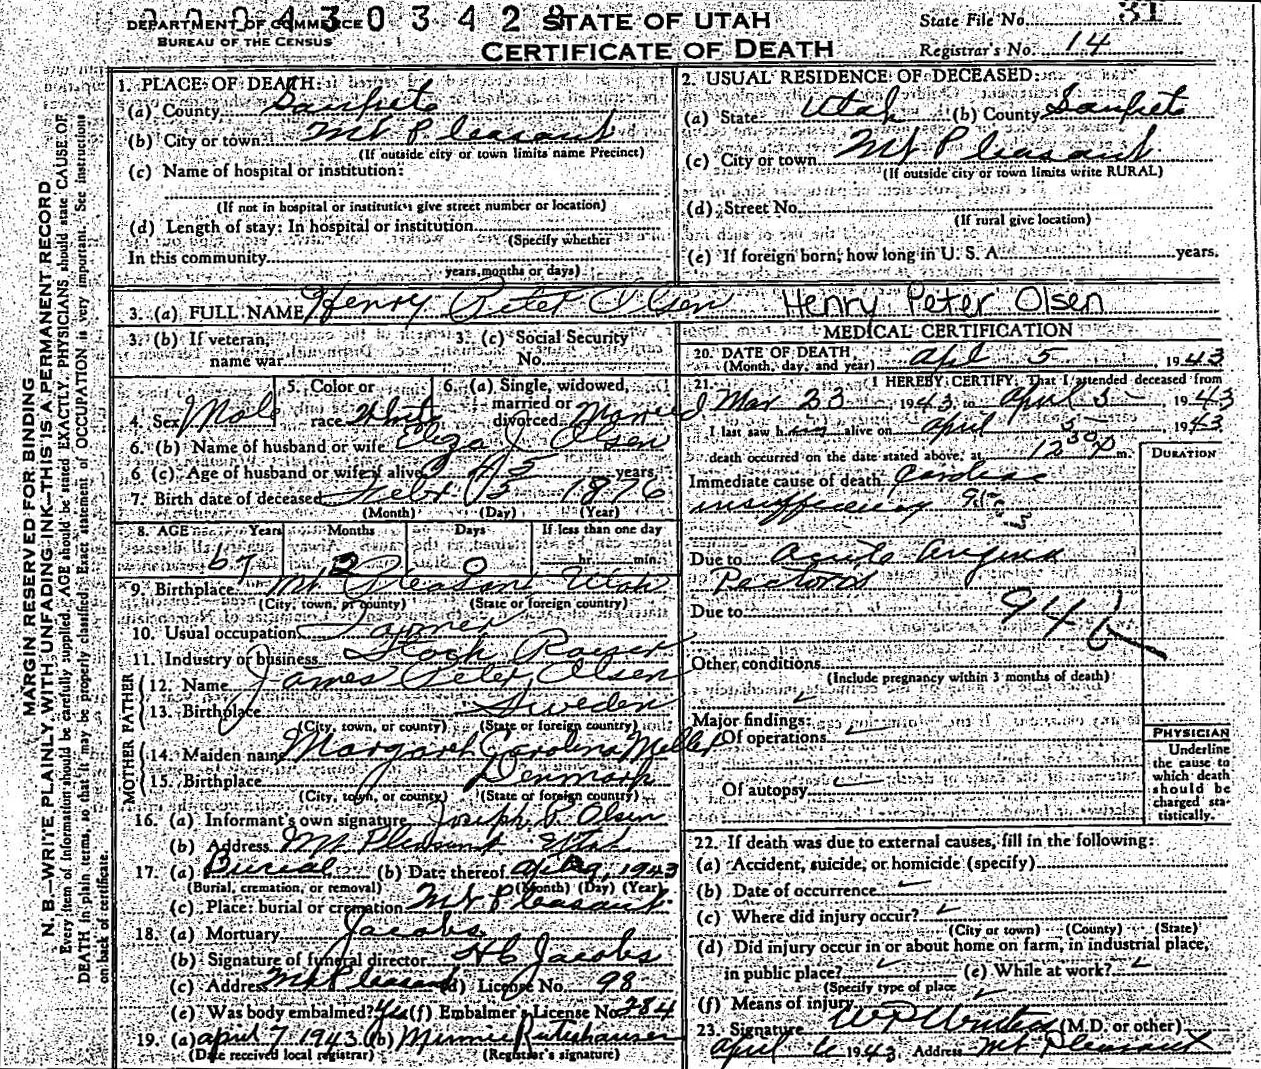 0 0 0 4 3 0 3 4 2
DEPARTMENT OF COMMERCE
BUREAU OF THE CENSUS
STATE OF UTAH
CERTIFICATE OF DEATH
State File No. 31
Registrar's No. 14
MARGIN RESERVED FOR BINDING
N. B.—WRITE PLAINLY, WITH UNFADING INK—THIS IS A PERMANENT RECORD
Every item of information should be carefully supplied. AGE should be stated EXACTLY. PHYSICIANS should state CAUSE OF
DEATH in plain terms, so that it may be properly classified. Exact statement of OCCUPATION is very important. See instructions
on back of certificate.
1. PLACE OF DEATH:
(a) County Sanpete
(b) City or town Mt Pleasant
(If outside city or town limits name Precinct)
(c) Name of hospital or institution:
(If not in hospital or institution give street number or location)
(d) Length of stay: In hospital or institution
(Specify whether
In this community
years, months or days)
2. USUAL RESIDENCE OF DECEASED:
(a) State Utah (b) County Sanpete
(c) City or town Mt Pleasant
(If outside city or town limits write RURAL)
(d) Street No.
(If rural give location)
(e) If foreign born, how long in U. S. A. years.
3. (a) FULL NAME Henry Peter Olsen Henry Peter Olsen
3. (b) If veteran,
name war
3. (c) Social Security
No.
4. Sex Male
5. Color or
race White
6. (a) Single, widowed,
married or
divorced Married
6. (b) Name of husband or wife Eliza J Olsen
6. (c) Age of husband or wife if alive years
7. Birth date of deceased Feb. 1876
(Month) (Day) (Year)
8. AGE Years Months Days If less than one day
67 2 0 hr. min.
9. Birthplace Mt Pleasant Utah
(City, town, or county) (State or foreign country)
10. Usual occupation Farmer
11. Industry or business Stock Raiser
FATHER
12. Name James Peter Olsen
13. Birthplace Sweden
(City, town, or county) (State or foreign country)
MOTHER
14. Maiden name Margaret Carolina Meller
15. Birthplace Denmark
(City, town, or county) (State or foreign country)
16. (a) Informant's own signature Joseph P. Olsen
(b) Address Mt Pleasant Utah
17. (a) Burial (b) Date thereof 1943
(Burial, cremation, or removal) (Month) (Day) (Year)
(c) Place: burial or cremation Mt Pleasant
18. (a) Mortuary Jacobs
(b) Signature of funeral director H C Jacobs
(c) Address Mt Pleasant (d) License No. 98
(e) Was body embalmed? Yes (f) Embalmer's License No. 284
19. (a) April 7 1943 (b) Minnie Rutishauser
(Date received local registrar) (Registrar's signature)
MEDICAL CERTIFICATION
20. DATE OF DEATH
(Month, day, and year) Apr 5, 1943
21. I HEREBY CERTIFY, That I attended deceased from
Mar 23, 1943, to April 5, 1943
I last saw him alive on April 5, 1943
death occurred on the date stated above, at 12 30 P m.
DURATION
Immediate cause of death Cardiac
insufficiency
Due to Acute Angina
Pectoris
Due to
94b
Other conditions
(Include pregnancy within 3 months of death)
Major findings:
Of operations
Of autopsy
PHYSICIAN
Underline
the cause to
which death
should be
charged sta-
tistically.
22. If death was due to external causes, fill in the following:
(a) Accident, suicide, or homicide (specify)
(b) Date of occurrence
(c) Where did injury occur?
(City or town) (County) (State)
(d) Did injury occur in or about home on farm, in industrial place,
in public place? (e) While at work?
(Specify type of place
(f) Means of injury
23. Signature (M.D. or other)
April 6 1943. Address Mt Pleasant